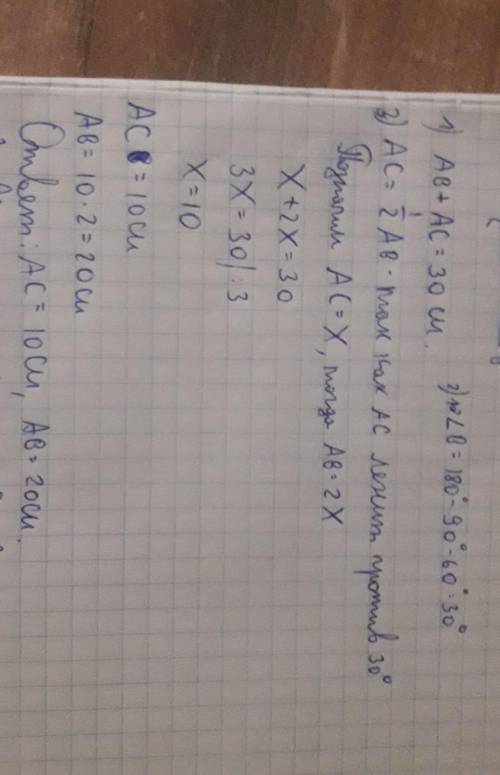 1) AB + AC = 30 см.
2) ∠B = 180° - 90° - 60° = 30°
3) AC = 1/2 AB - так как AC лежит против 30°
Позначим AC = X, тогда AB = 2X
X + 2X = 30
3X = 30 | : 3
X = 10
AC = 10 см
AB = 10 · 2 = 20 см
Ответ: AC = 10 см, AB = 20 см.